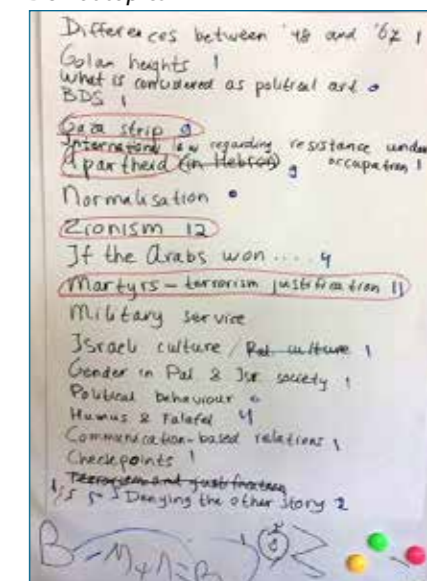 Differences between '48 and '67 1
Golan heights 1
What is considered as political art 0
BDS 1
Gaza strip 9
International law regarding resistance under occupation 1
Apartheid (in Hebron) 9
Normalisation 0
Zionism 12
If the Arabs won .... 4
Martyrs - terrorism justification 11
Military service
Israeli culture / Pal. culture 1
Gender in Pal & Isr society 1
Political behaviour 0
Humus & Falafel 4
Communication-based relations 1
Checkpoints 1
Terrorism and justification
Denying the other story 2